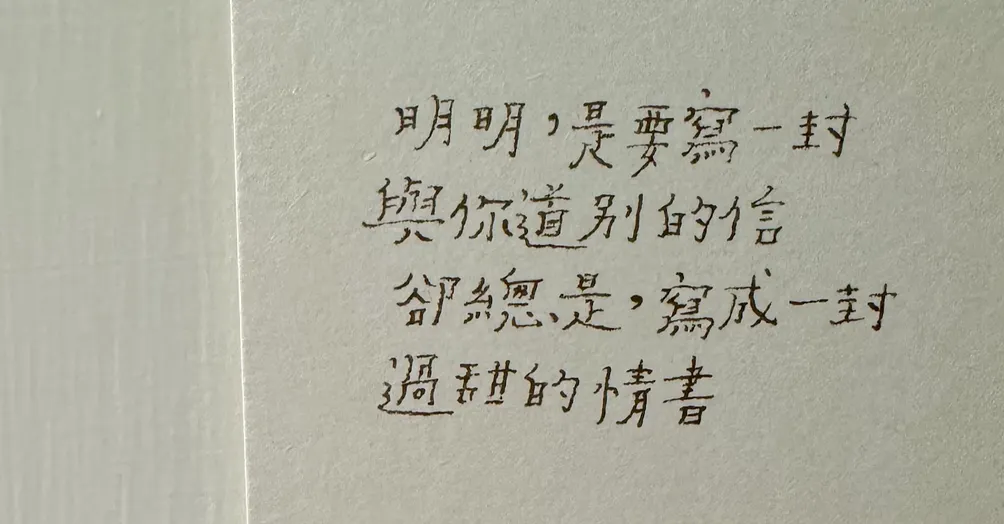 明明，是要寫一封
與你道別的信
卻總是，寫成一封
過甜的情書